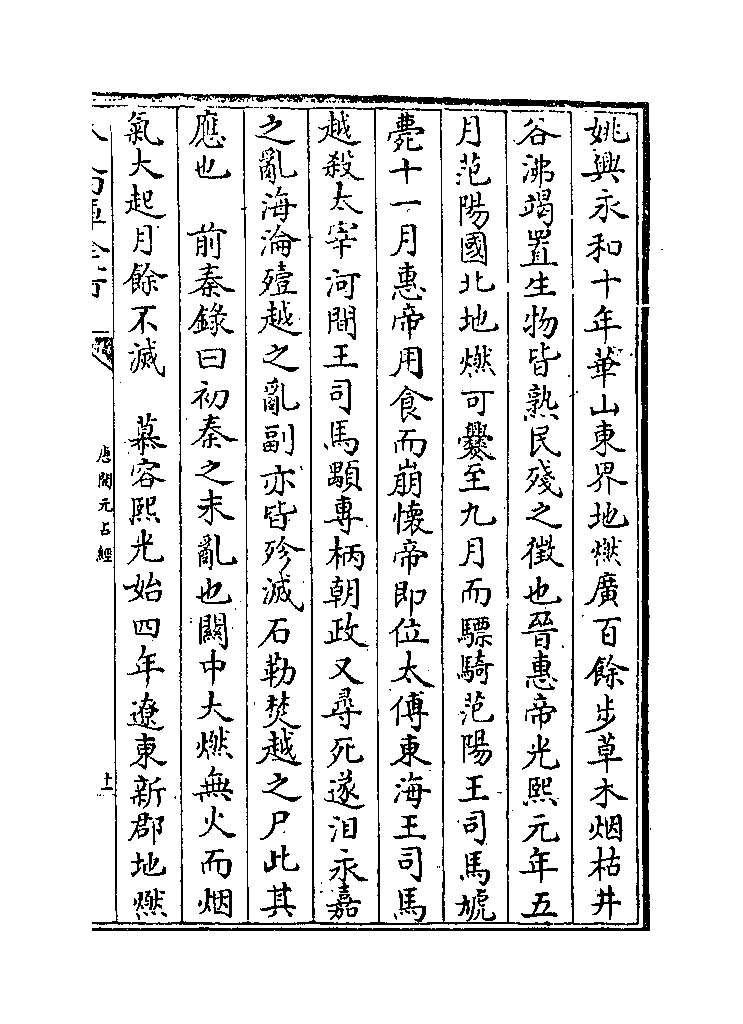 姚興永和十年華山東界地燃廣百餘步草木烟枯井
谷沸竭置生物皆熟民殘之徴也晉惠帝光熙元年五
月范陽國北地燃可爨至九月而驃騎范陽王司馬虓
薨十一月惠帝用食而崩懷帝即位太傅東海王司馬
越殺太宰河間王司馬顒専柄朝政又尋死遂汨永嘉
之亂海淪殪越之亂副亦皆殄滅石勒焚越之尸此其
應也　前秦錄曰初秦之未亂也闗中大燃無火而烟
氣大起月餘不滅　慕容熙光始四年遼東新郡地燃
唐開元占經
十一